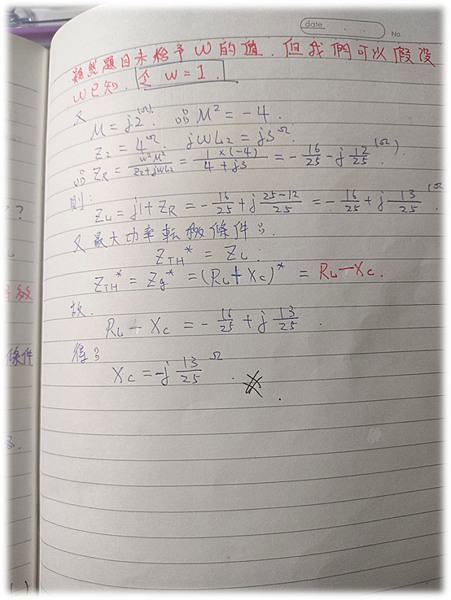 date
No.
雖然題目未給予 W 的值, 但我們可以假設
W 已知, 令 W = 1.
又
M = j2 (Ω) ∴ M² = -4.
Z₂ = 4 Ω. jWL₂ = j3 Ω.
∴ Z_R = W²M² / (Z₂+jWL₂) = 1×(-4) / (4+j3) = -16/25 - j 12/25 (Ω)
則:
Z_L = j1 + Z_R = -16/25 + j (25-12)/25 = -16/25 + j 13/25 (Ω
又最大功率転移條件:
Z_TH* = Z_L
Z_TH* = Z_g* = (R_L + X_C)* = R_L - X_C.
故.
R_L - X_C = -16/25 + j 13/25.
得:
X_C = -j 13/25 Ω.
條件